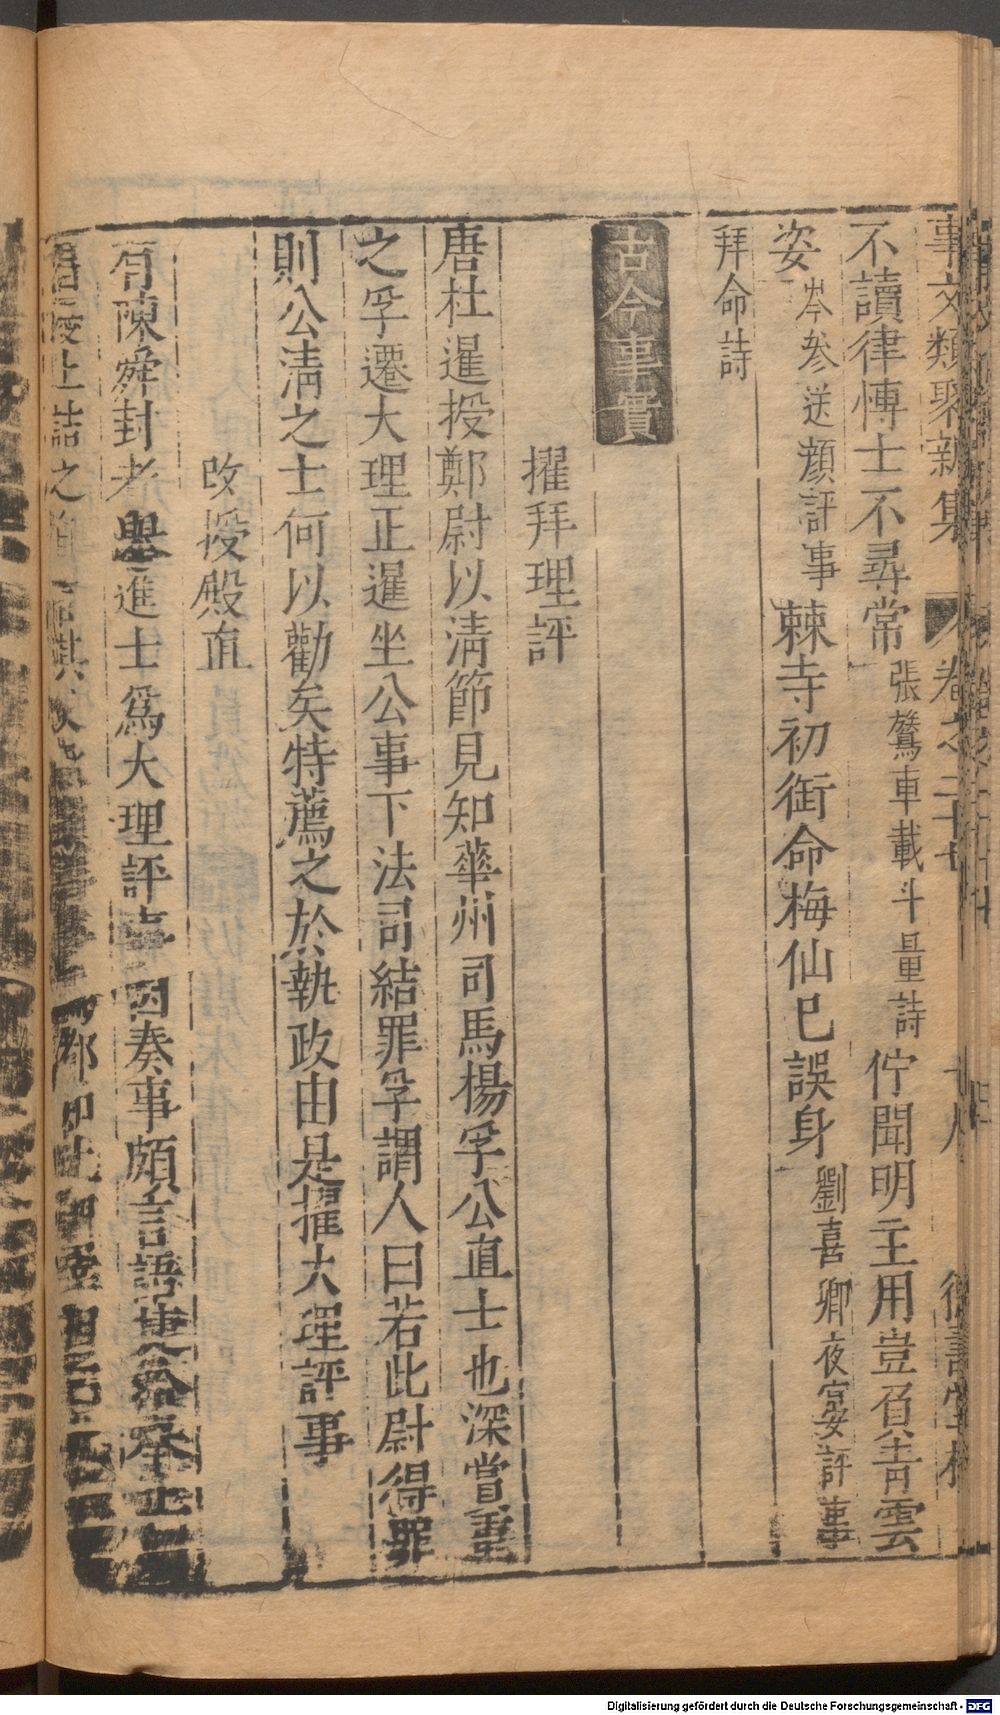 事文類聚新集 卷之二十七 十八
不讀律愽士不尋常 張鷟車載斗量詩 佇聞明主用豈負青雲
姿 岑參送顔評事 棘寺初銜命梅仙已誤身 劉喜卿夜宴評事
拜命詩
古今事實
擢拜理評
唐杜暹授鄭尉以清節見知華州司馬楊孚公直士也深嘗重
之孚遷大理正暹坐公事下法司結罪孚謂人曰若此尉得罪
則公清之士何以勸矣特薦之於執政由是擢大理評事
改授殿直
有陳舜封者舉進士爲大理評事因奏事頗言語捷給舉止
上詰之
Digitalisierung gefördert durch die Deutsche Forschungsgemeinschaft - DFG